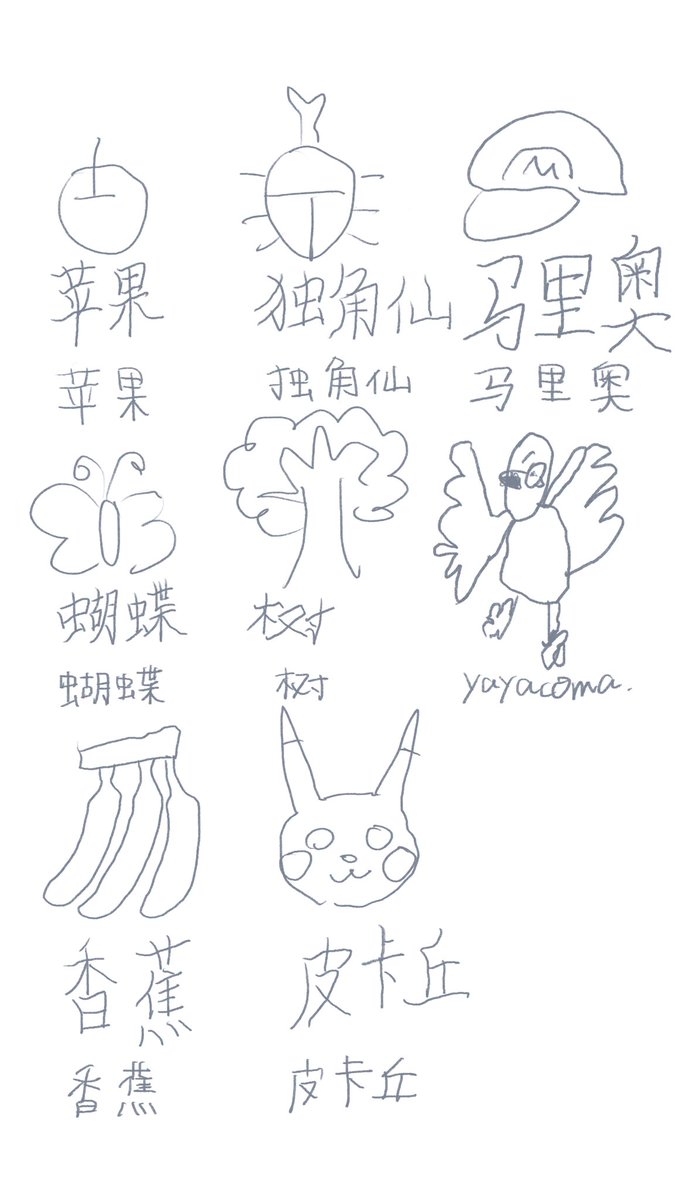 M
苹果
独角仙
马里奥
苹果
独角仙
马里奥
蝴蝶
树
蝴蝶
树
yayacoma.
香蕉
皮卡丘
香蕉
皮卡丘